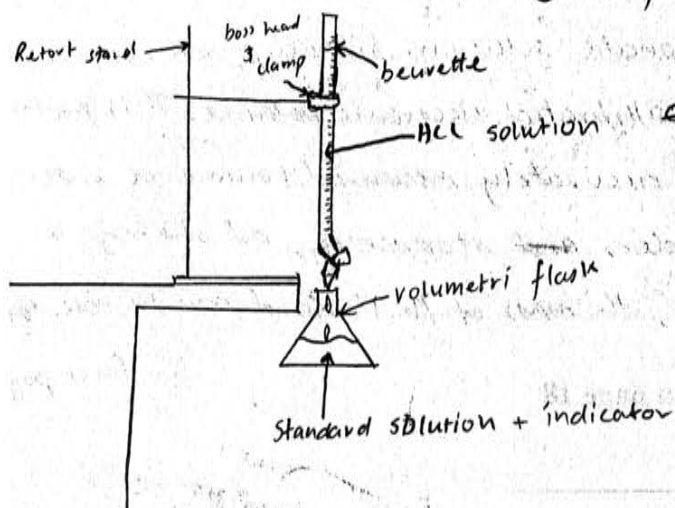 Retort stand
boss head
& clamp
beurette
HCl solution
volumetri flask
Standard solution + indicator